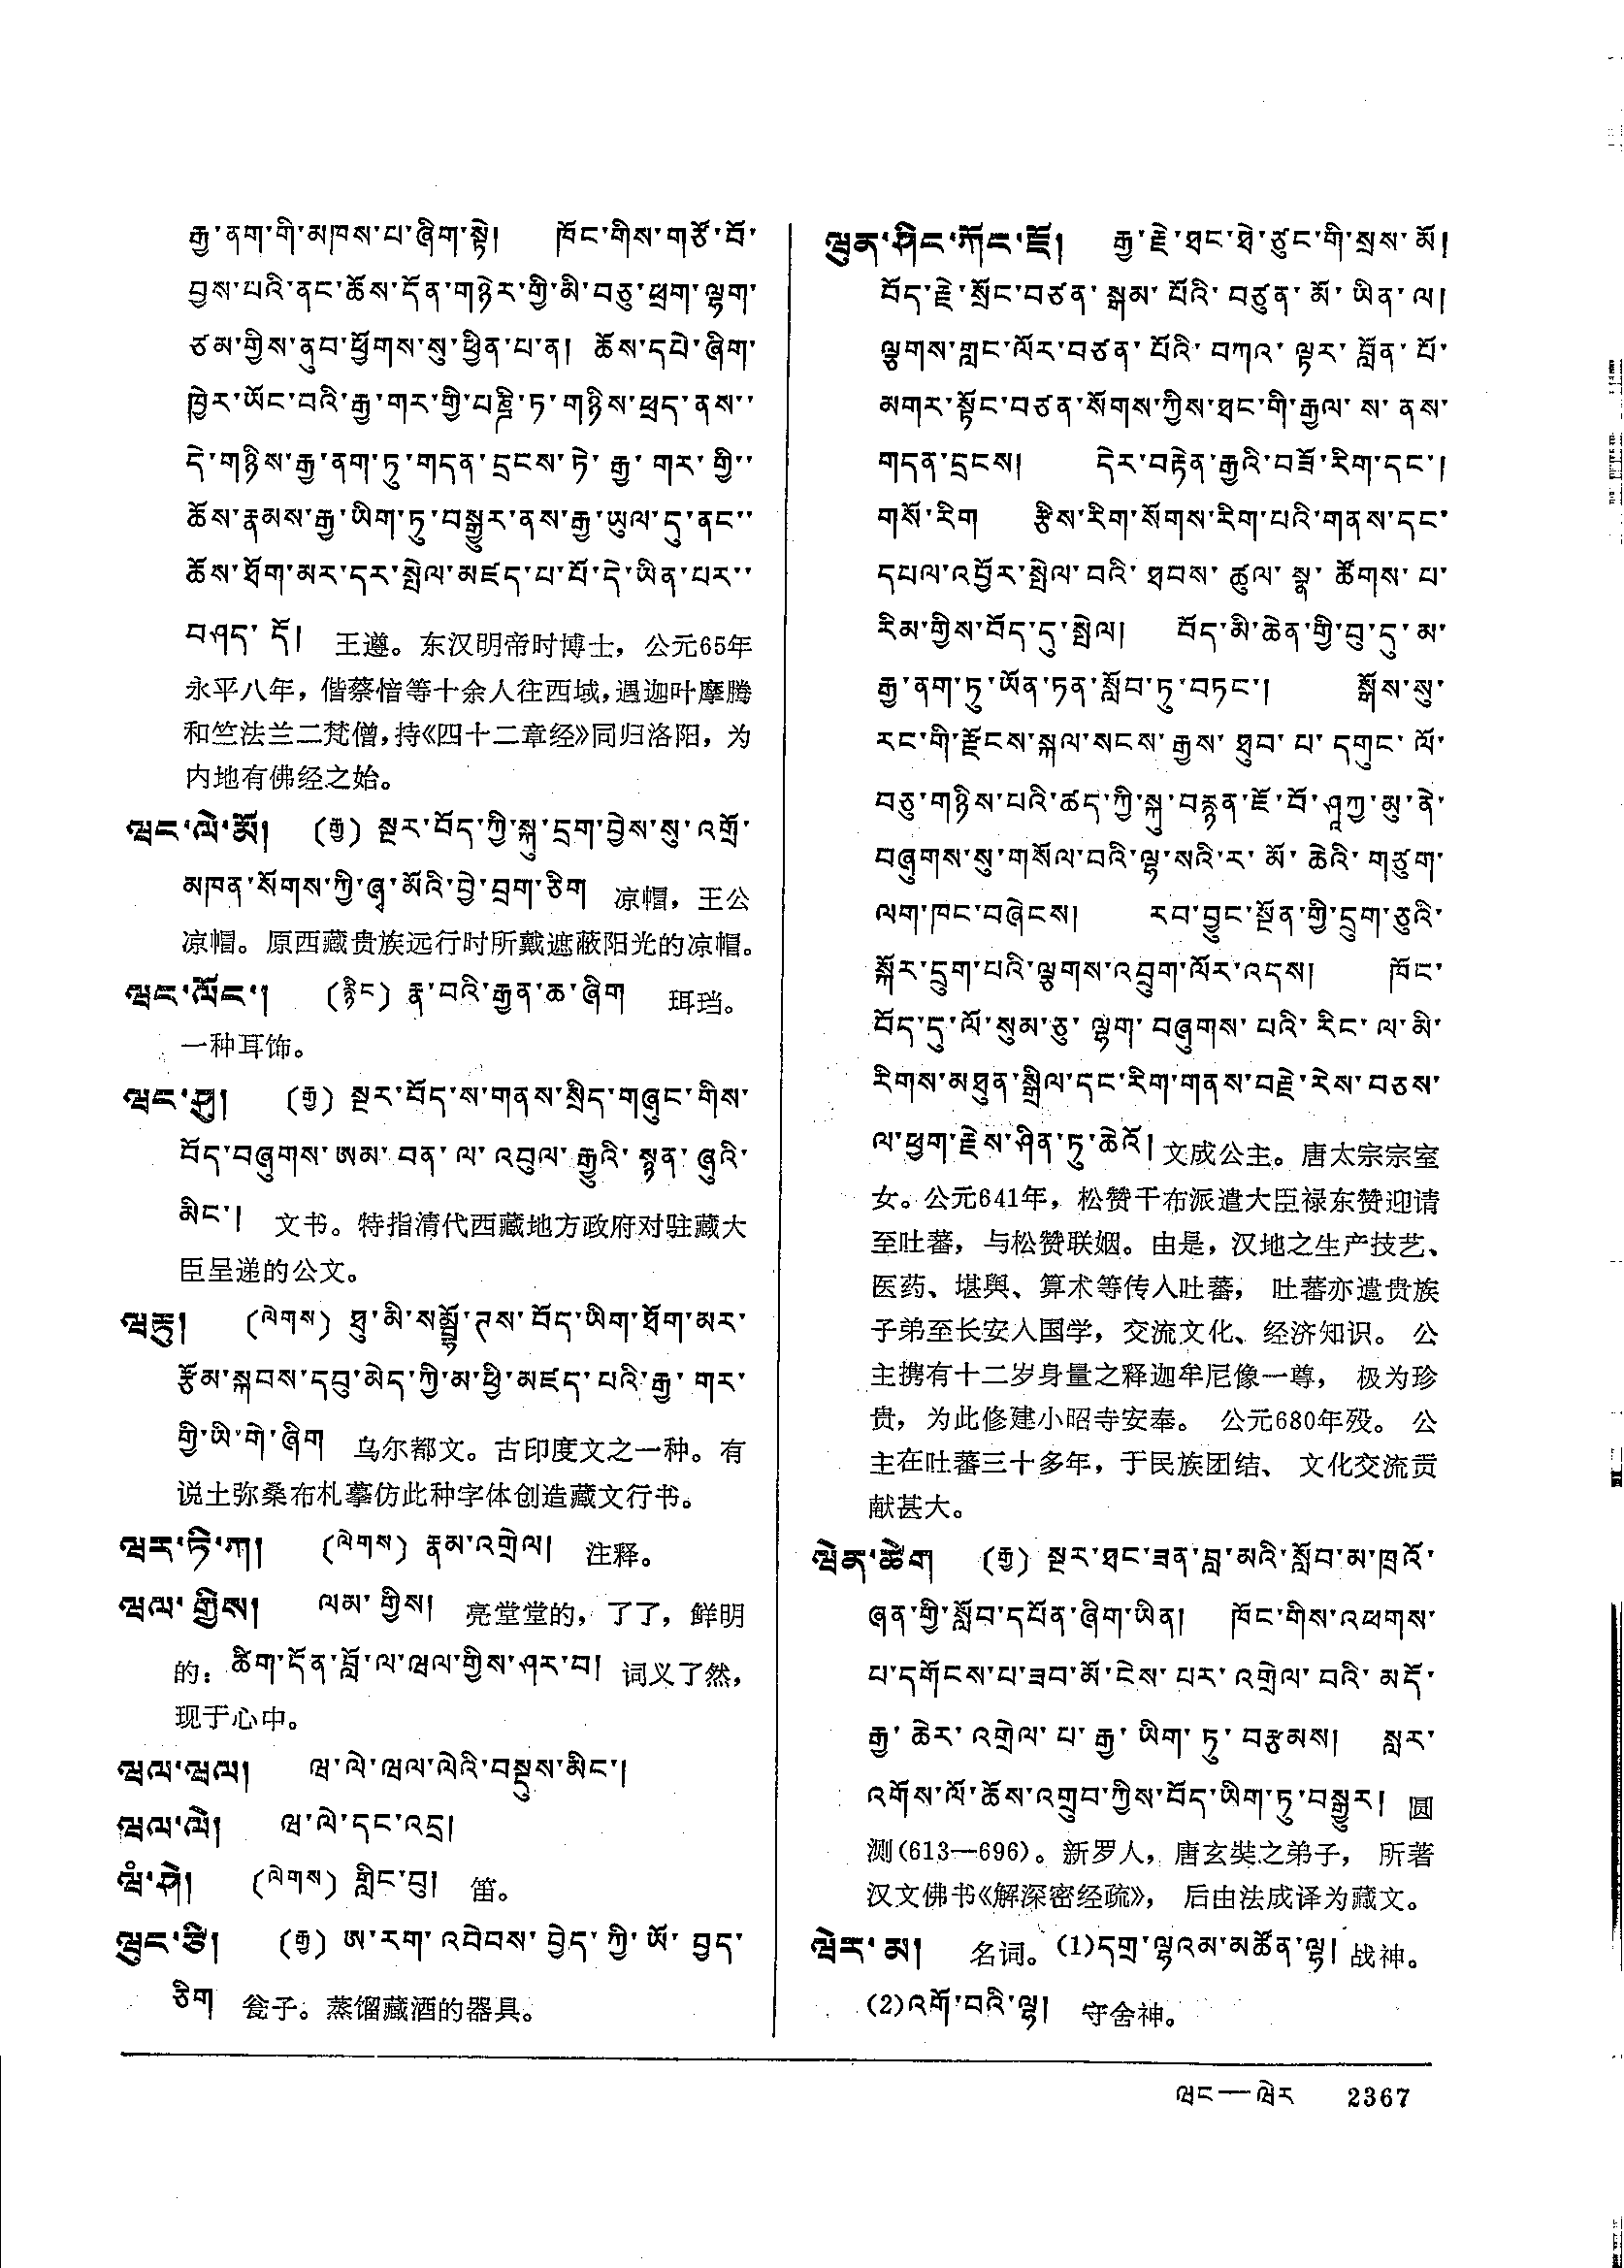 རྒྱ་ནག་གི་མཁས་པ་ཞིག་སྟེ། ཁོང་གིས་གཙོ་བོ་
བྱས་པའི་ནང་ཆོས་དོན་གཉེར་གྱི་མི་བཅུ་ཕྲག་ལྷག་
ཙམ་གྱིས་ནུབ་ཕྱོགས་སུ་ཕྱིན་པ་ན། ཆོས་དཔེ་ཞིག་
ཁྱེར་ཡོང་བའི་རྒྱ་གར་གྱི་པཎྜི་ཏ་གཉིས་ཕྲད་ནས་་
དེ་གཉིས་རྒྱ་ནག་ཏུ་གདན་དྲངས་ཏེ་ རྒྱ་ གར་ གྱི་་
ཆོས་རྣམས་རྒྱ་ཡིག་ཏུ་བསྒྱུར་ནས་རྒྱ་ཡུལ་དུ་ནང་་
ཆོས་ཐོག་མར་དར་སྤེལ་མཛད་པ་པོ་དེ་ཡིན་པར་་
བཤད་ དོ། 王遵。东汉明帝时博士，公元65年
永平八年，偕蔡愔等十余人往西域，遇迦叶摩腾
和竺法兰二梵僧，持《四十二章经》同归洛阳，为
内地有佛经之始。
ཝང་ལེ་མོ། (རྒྱ) སྔར་བོད་ཀྱི་སྐུ་དྲག་བྱེས་སུ་འགྲོ་
མཁན་སོགས་ཀྱི་ཞྭ་མོའི་བྱེ་བྲག་ཅིག 凉帽，王公
凉帽。原西藏贵族远行时所戴遮蔽阳光的凉帽。
ཝང་ལོང་། (རྙིང) རྣ་བའི་རྒྱན་ཆ་ཞིག 珥珰。
一种耳饰。
ཝང་ཤུ། (རྒྱ) སྔར་བོད་ས་གནས་སྲིད་གཞུང་གིས་
བོད་བཞུགས་ཨམ་ བན་ ལ་ འབུལ་ རྒྱུའི་ སྙན་ ཞུའི་
མིང་། 文书。特指清代西藏地方政府对驻藏大
臣呈递的公文。
ཝརྟུ། (ལེགས) ཐུ་མི་སམྦྷོ་ཊས་བོད་ཡིག་ཐོག་མར་
རྩོམ་སྐབས་དབུ་མེད་ཀྱི་མ་ཕྱི་མཛད་པའི་རྒྱ་ གར་
གྱི་ཡི་གེ་ཞིག 乌尔都文。古印度文之一种。有
说土弥桑布札摹仿此种字体创造藏文行书。
ཝར་ཏི་ཀ། (ལེགས) རྣམ་འགྲེལ། 注释。
ཝལ་གྱིས། ལམ་ གྱིས། 亮堂堂的，了了，鲜明
的：ཚིག་དོན་བློ་ལ་ཝལ་གྱིས་ཤར་བ། 词义了然，
现于心中。
ཝལ་ཝལ། ཝ་ལེ་ཝལ་ལེའི་བསྡུས་མིང་།
ཝལ་ལེ། ཝ་ལེ་དང་འདྲ།
ཝཾ་ཤེ། (ལེགས) གླིང་བུ། 笛。
ཝུང་ཙི། (རྒྱ) ཨ་རག་ འབེབས་ བྱེད་ ཀྱི་ ཡོ་ བྱད་
ཅིག 瓮子。蒸馏藏酒的器具。
ཝུན་ཤིང་ཀོང་ཇོ། རྒྱ་རྗེ་ཐང་ཐེ་ཙུང་གི་སྲས་མོ།
བོད་རྗེ་སྲོང་བཙན་ སྒམ་ པོའི་ བཙུན་ མོ་ ཡིན་ ལ།
ལྕགས་གླང་ལོར་བཙན་ པོའི་ བཀའ་ ལྟར་ བློན་ པོ་
མགར་སྟོང་བཙན་སོགས་ཀྱིས་ཐང་གི་རྒྱལ་ ས་ ནས་
གདན་དྲངས། དེར་བརྟེན་རྒྱའི་བཟོ་རིག་དང་།
གསོ་རིག རྩིས་རིག་སོགས་རིག་པའི་གནས་དང་
དཔལ་འབྱོར་སྤེལ་བའི་ ཐབས་ ཚུལ་ སྣ་ ཚོགས་ པ་
རིམ་གྱིས་བོད་དུ་སྤེལ། བོད་མི་ཆེན་གྱི་བུ་དུ་མ་
རྒྱ་ནག་ཏུ་ཡོན་ཏན་སློབ་ཏུ་བཏང་། སྒོས་སུ་
རང་གི་རྫོངས་སྐལ་སངས་རྒྱས་ ཐུབ་ པ་ དགུང་ ལོ་
བཅུ་གཉིས་པའི་ཚད་ཀྱི་སྐུ་བརྙན་ཇོ་བོ་ཤཱཀྱ་མུ་ནེ་
བཞུགས་སུ་གསོལ་བའི་ལྷ་སའི་ར་ མོ་ ཆེའི་ གཙུག་
ལག་ཁང་བཞེངས། རབ་བྱུང་སྔོན་གྱི་དྲུག་ཅུའི་
སྐོར་དྲུག་པའི་ལྕགས་འབྲུག་ལོར་འདས། ཁོང་
བོད་དུ་ལོ་སུམ་ཅུ་ ལྷག་ བཞུགས་ པའི་ རིང་ ལ་མི་
རིགས་མཐུན་སྒྲིལ་དང་རིག་གནས་བརྗེ་རེས་བཅས་
ལ་ཕྱག་རྗེས་ཤིན་ཏུ་ཆེའོ། 文成公主。唐太宗宗室
女。公元641年，松赞干布派遣大臣禄东赞迎请
至吐蕃，与松赞联姻。由是，汉地之生产技艺、
医药、堪舆、算术等传入吐蕃， 吐蕃亦遣贵族
子弟至长安入国学，交流文化、经济知识。 公
主携有十二岁身量之释迦牟尼像一尊， 极为珍
贵，为此修建小昭寺安奉。 公元680年殁。 公
主在吐蕃三十多年，于民族团结、 文化交流贡
献甚大。
ཝེན་ཚེག (རྒྱ) སྔར་ཐང་ཟན་བླ་མའི་སློབ་མ་ཁྲའོ་
ཞན་གྱི་སློབ་དཔོན་ཞིག་ཡིན། ཁོང་གིས་འཕགས་
པ་དགོངས་པ་ཟབ་མོ་ངེས་ པར་ འགྲེལ་ བའི་ མདོ་
རྒྱ་ ཆེར་ འགྲེལ་ པ་ རྒྱ་ ཡིག་ ཏུ་ བརྩམས། སླར་
འགོས་ལོ་ཆོས་འགྲུབ་ཀྱིས་བོད་ཡིག་ཏུ་བསྒྱུར། 圆
测(613—696)。新罗人，唐玄奘之弟子， 所著
汉文佛书《解深密经疏》， 后由法成译为藏文。
ཝེར་མ། 名词。(1)དགྲ་ལྷའམ་མཚོན་ལྷ། 战神。
(2)འགོ་བའི་ལྷ། 守舍神。
ཝང—ཝེར 2367